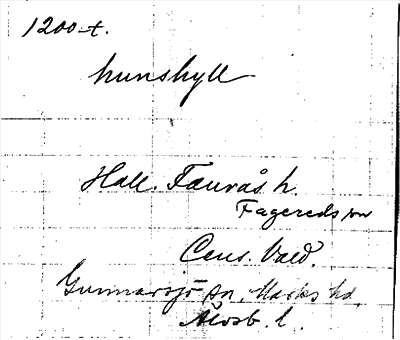 1200-t.
hunskyll
Hall. Faurås h.
Fagereds sn
Cens. Vald.
Gunnarsjö sn, Marks hd,
Älvsb. l.